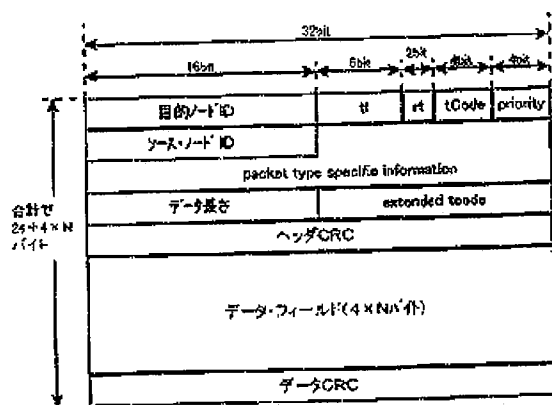 32bit
16bit 6bit 2bit 4bit 4bit
目的ノードID tl rt tCode priority
ソース・ノードID
packet type specific information
データ長さ extended tcode
ヘッダCRC
合計で
24+4×N
バイト
データ・フィールド(4×Nバイト)
データCRC